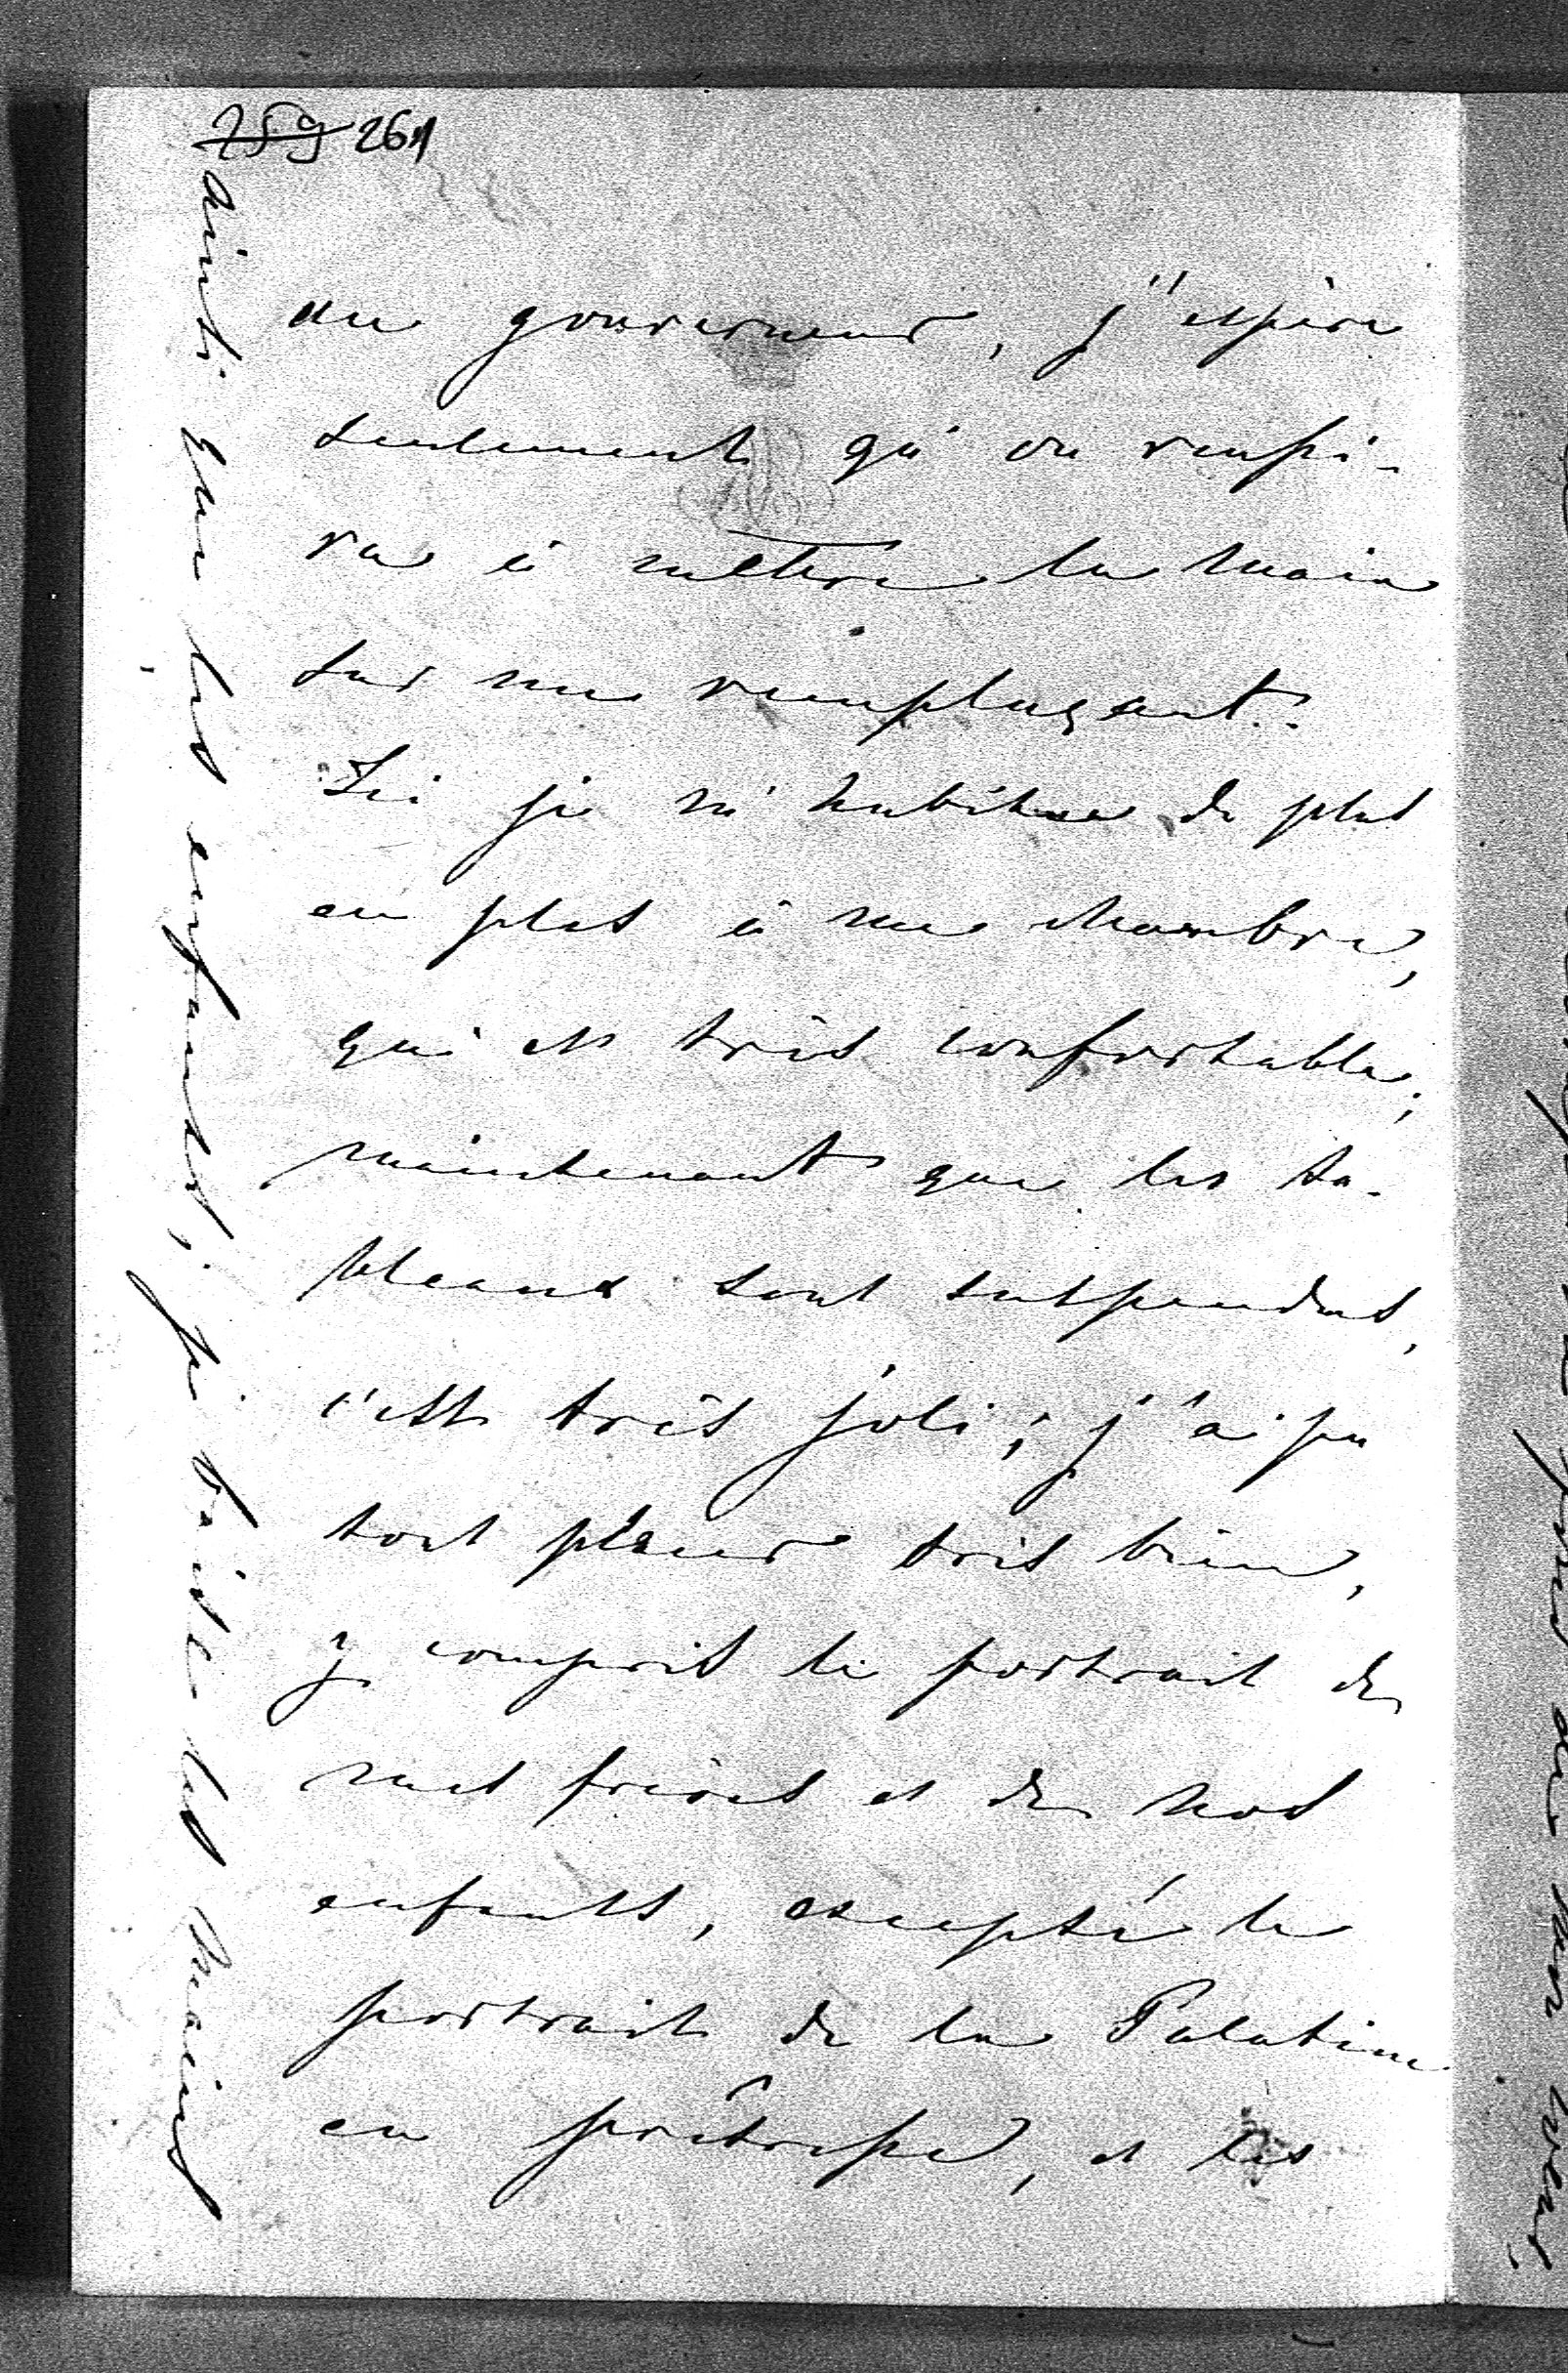 259 261
au gouverneur, j'espère
seulement qu'on reussi-
ra à mettre la main
sur un remplaçant.
Ici je m'habitue de plus
en plus à ma chambre,
qui est très confortable;
maintenant que les ta-
bleaux sont suspendus,
c'est très joli; j'ai pu
tout placer très bien,
y compris le portrait de
mes frères et de nos
enfants, excepté le
portrait de la Palatine
en et les
ainsi que les enfants; je baise les mains